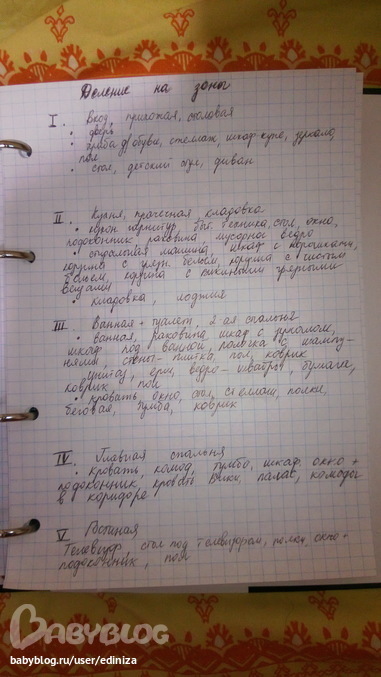 Деление на зоны
I. Вход, прихожая, столовая
• дверь
• тумба д/обуви, стеллаж, шкаф-купе, зеркало,
пол
• стол, детский стул, диван
II. Кухня, прачечная, кладовка
• кухон гарнитур, быт. техника, стол, окно,
подоконник, раковина, мусорное ведро
• стиральная машина, шкаф с порошками,
корзина с цветн. бельем, корзина с чистым
бельем, корзина с грязными
вещами
• кладовка, лоджия
III. Ванная + туалет, 2-ая спальня
• ванная, раковина, шкаф с зеркалом,
шкаф под ванной, полочка с шампу-
нями, стены-плитка, пол, коврик
• унитаз, ерш, ведро-швабры, бумага,
коврик, пол
• кровать, окно, стол, стеллаж, полки,
беговая, тумба, коврик
IV. Главная спальня
• кровать, комод, тумба, шкаф, окно +
подоконник, кровать Вики, палас, комоды
в коридоре
V. Гостиная
Телевизор, стол под телевизором, полки, окно +
подоконник, пол
BABYBLOG
babyblog.ru/user/ediniza